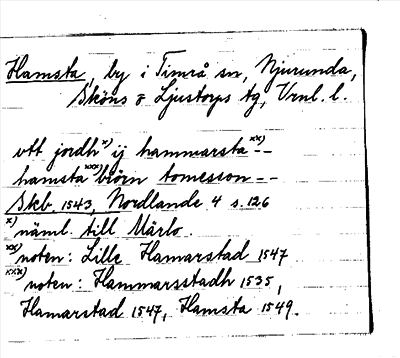 Hamsta, by i Timrå sn, Njurunda,
Sköns & Ljustorps tg, Vrnl. l.
vtt jordh x) ij hammarsta xx) --
hamsta xxx) biörn tomesson --
Skb. 1543, Nordlande 4 s. 126
x) näml. till Märlo.
xx) noten: Lille Hamarstad 1547
xxx) noten: Hammarsstadh 1535,
Hamarstad 1547, Hamsta 1549.